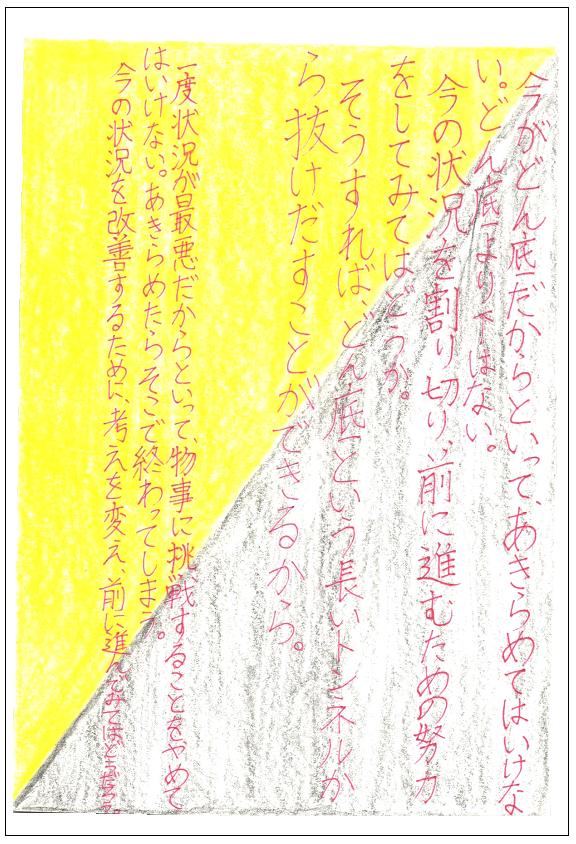 今がどん底だからといって、あきらめてはいけな
い。どん底より下はない。
今の状況を割り切り、前に進むための努力
をしてみてはどうか。
そうすれば、どん底という長いトンネルか
ら抜けだすことができるから。
一度状況が最悪だからといって、物事に挑戦することをやめて
はいけない。あきらめたらそこで終わってしまう。
今の状況を改善するために、考えを変え、前に進んでみてはどうだろう。